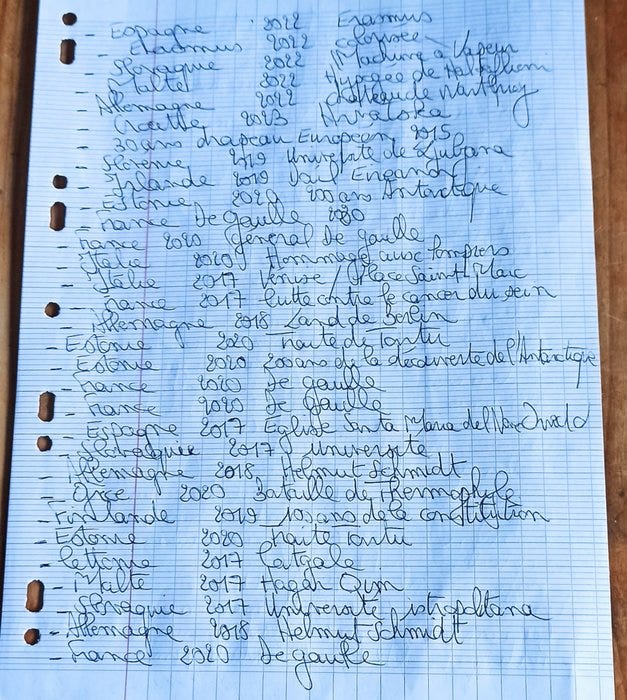 - Espagne 2022 Erasmus
- Erasmus 2022 colorisée
- Slovaquie 2022 Machine à Vapeur
- Malte 2022 Hypogée de Hal
- Allemagne 2022 château de Wartburg
- Croatie 2023 Hrvatska
- 30 ans drapeau Européen 2015
- Slovénie 2019 Université de Ljubana
- Irlande 2019 Dail Eireann
- Estonie 2020 200 ans Antarctique
- France De gaulle 2020
- France 2020 général De gaulle
- Italie 2020 Hommage aux Pompiers
- Italie 2017 Venise / Place Saint-Marc
- France 2017 lutte contre le cancer du sein
- Allemagne 2018 Land de Berlin
- Estonie 2020 Traité de Tartu
- Estonie 2020 200 ans de la découverte de l'Antarctique
- France 2020 De gaulle
- France 2020 De Gaulle
- Espagne 2017 Eglise Santa Maria del
- Slovaquie 2017 Université
- Allemagne 2018 Helmut Schmidt
- Grèce 2020 Bataille de Thermophyle
- Finlande 2019 100 ans de la constitution
- Estonie 2020 traité Tartu
- lettonie 2017 Latgale
- Malte 2017 Hagar Qim
- Slovaquie 2017 Université istropolitana
- Allemagne 2018 Helmut Schmidt
- France 2020 De gaulle